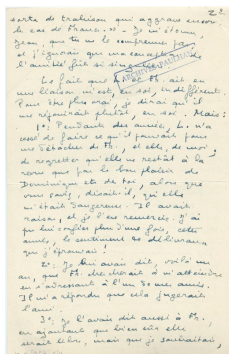 sorte de trahison qui aggrave encore
le cas de Franz." - Je m'étonne,
Jean, que tu ne le comprennes pas
et j'ignorais que ma conception de
l'amitié fût si
Le fait que ait eu
une liaison m'est, en soi, indifférent.
Pour être plus vrai, je dirai qu'il
me réjouirait plutôt, en soi. Mais:
1°: Pendant des années, L. n'a
cessé de faire ce qu'il pouvait pour
me détacher de M., et elle, de moi,
de regretter qu'elle ne restât à la
que par le bon plaisir de
Dominique et de toi, alors que
vous savez, disait-il, qu'elle
m'était dangereuse. Il avait
raison, et je l'en remercie. J'ai
pu lui confier plus d'une fois, cette
année, le sentiment de délivrance
que j'éprouvais!
2°: Je lui avais dit, voilà un
an, que M. chercherait à m'atteindre
en s'adressant à l'un de mes amis.
Il m'a répondu que cela jugerait
l'ami.
3°: Je l'avais dit aussi à M.
en ajoutant que bien sûr elle
serait libre, mais que je souhaitais,